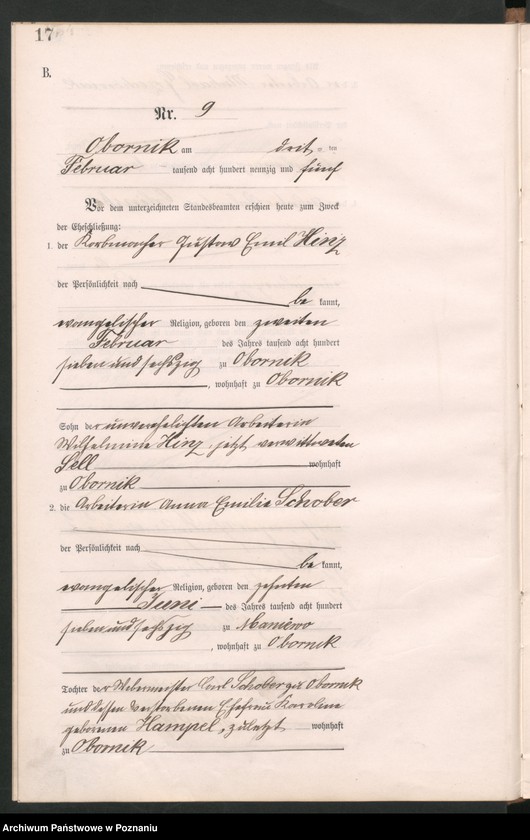 17
B.
Nr. 9
Obornik am dritten
Februar tausend acht hundert neunzig und fünf
Vor dem unterzeichneten Standesbeamten erschien heute zum Zweck
der Eheschließung:
1. der Korbmacher Gustav Emil Hinz
der Persönlichkeit nach
be kannt,
evangelischer Religion, geboren den zweiten
Februar des Jahres tausend acht hundert
sieben und sechszig zu Obornik
, wohnhaft zu Obornik
Sohn der unverehelichten Arbeiterin
Wilhelmine Hinz, jetzt verwittweten
Sell wohnhaft
zu Obornik
2. die Arbeiterin Anna Emilie Schober
der Persönlichkeit nach
be kannt,
evangelischer Religion, geboren den zehnten
Juni des Jahres tausend acht hundert
sieben und sechszig zu Maniewo
, wohnhaft zu Obornik
Tochter des Webermeister Carl Schober zu Obornik
und dessen verstorbenen Ehefrau Karoline
geborenen Hampel, zuletzt wohnhaft
zu Obornik
Archiwum Państwowe w Poznaniu